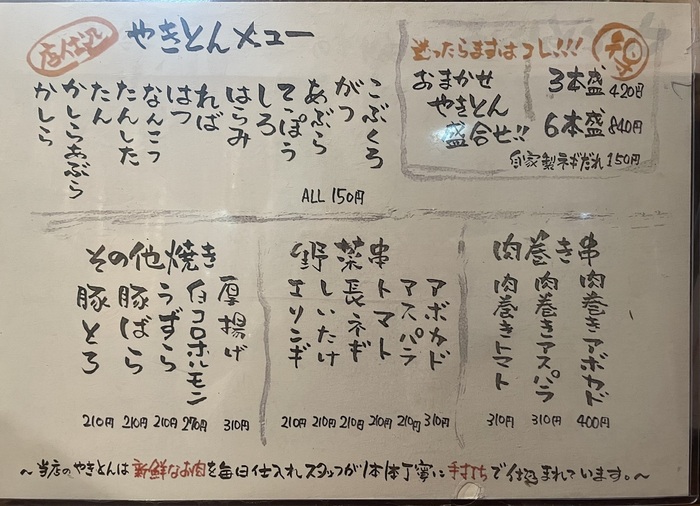 店仕込
やきとんメニュー
こぶくろ
がつ
あぶら
てっぽう
しろ
はらみ
れば
はつ
なんこつ
たんした
たん
かしらあぶら
かしら
ALL 150円
迷ったらまずはコレ!!!
おまかせ
やきとん
盛合せ!!
3本盛 420円
6本盛 840円
自家製ネギだれ 150円
肉巻き串
肉巻きアボカド 400円
肉巻きアスパラ 310円
肉巻きトマト 310円
野菜串
アボカド 310円
アスパラ 210円
トマト 210円
長ネギ 210円
しいたけ 210円
エリンギ 210円
その他焼き
厚揚げ 310円
白コロホルモン 270円
うずら 210円
豚ばら 210円
豚とろ 210円
～当店のやきとんは新鮮なお肉を毎日仕入れスタッフが1本1本丁寧に手打ちで仕込まれています。～